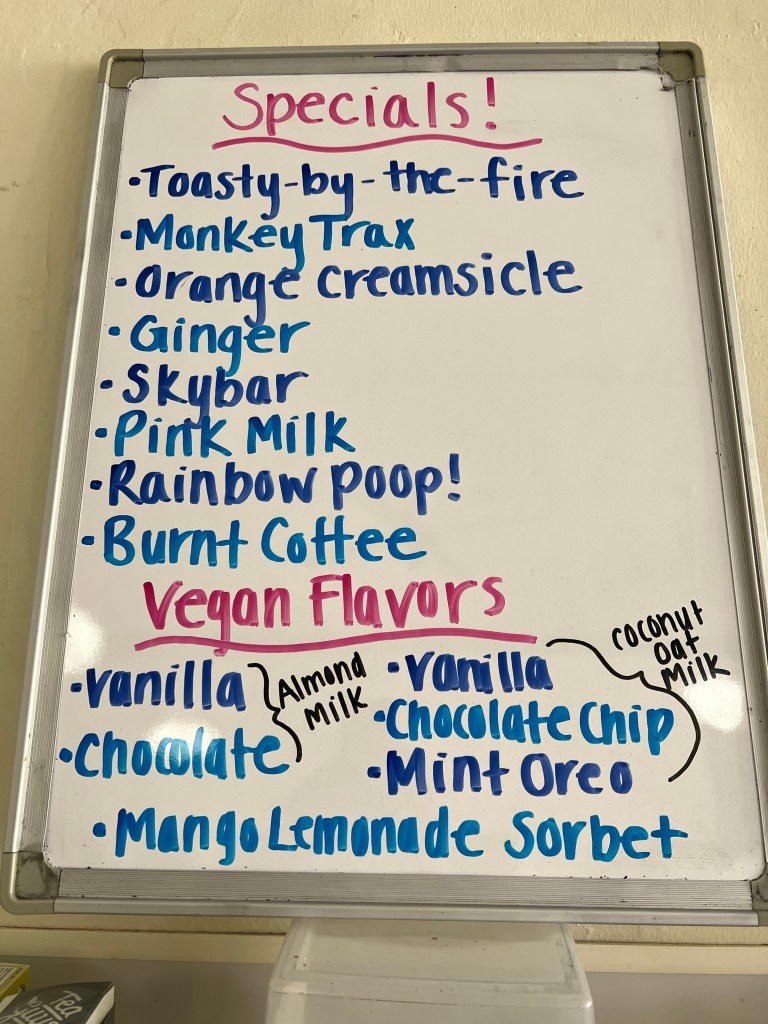 Specials!
•Toasty-by-the-fire
•Monkey Trax
•Orange Creamsicle
•Ginger
•Skybar
•Pink Milk
•Rainbow Poop!
•Burnt Coffee
Vegan Flavors
•Vanilla
•Chocolate
Almond
Milk
•Vanilla
•Chocolate Chip
•Mint Oreo
Coconut
Oat
Milk
•Mango Lemonade Sorbet
Tea